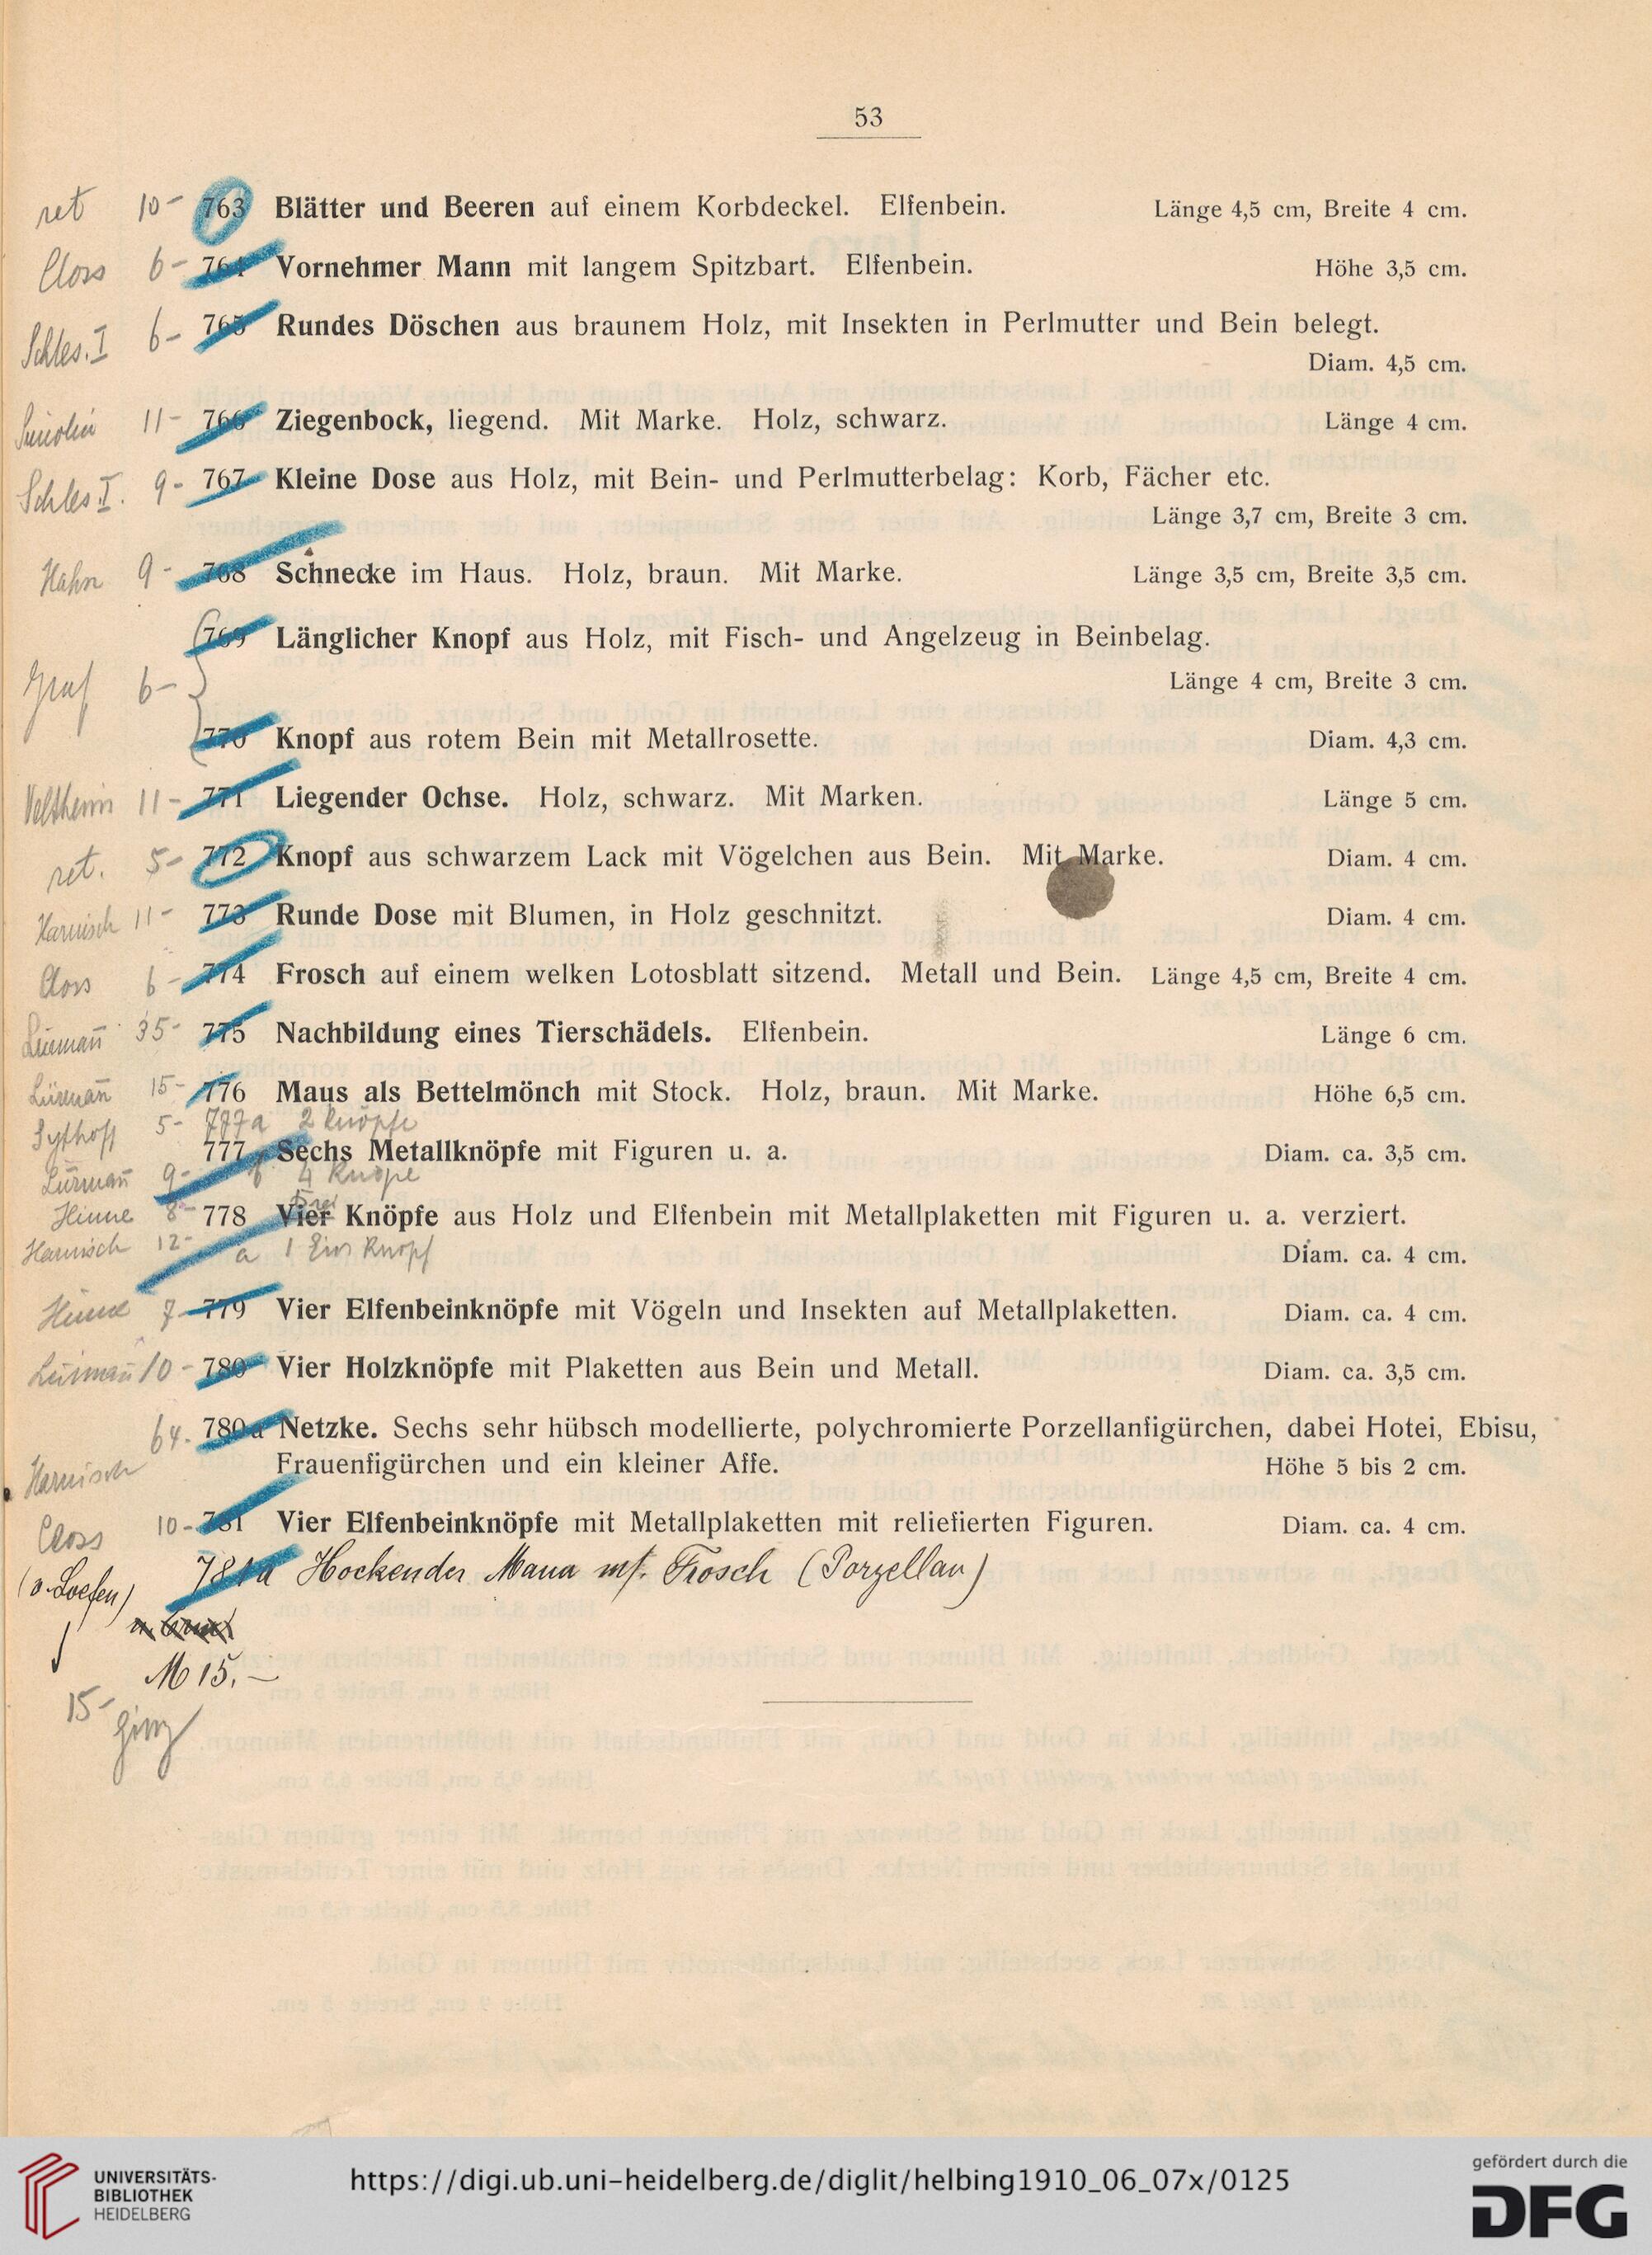 53
ret 10- 763 Blätter und Beeren auf einem Korbdeckel. Elfenbein. Länge 4,5 cm, Breite 4 cm.
Closs 6- 764 Vornehmer Mann mit langem Spitzbart. Elfenbein. Höhe 3,5 cm.
Schles. I 6- 765 Rundes Döschen aus braunem Holz, mit Insekten in Perlmutter und Bein belegt.
Diam. 4,5 cm.
11- 766 Ziegenbock, liegend. Mit Marke. Holz, schwarz. Länge 4 cm.
Schles I. 9- 767 Kleine Dose aus Holz, mit Bein- und Perlmutterbelag: Korb, Fächer etc.
Länge 3,7 cm, Breite 3 cm.
Hahn 9- 768 Schnecke im Haus. Holz, braun. Mit Marke. Länge 3,5 cm, Breite 3,5 cm.
769 Länglicher Knopf aus Holz, mit Fisch- und Angelzeug in Beinbelag.
Graf 6- Länge 4 cm, Breite 3 cm.
770 Knopf aus rotem Bein mit Metallrosette. Diam. 4,3 cm.
Veltheim 11- 771 Liegender Ochse. Holz, schwarz. Mit Marken. Länge 5 cm.
ret. 5- 772 Knopf aus schwarzem Lack mit Vögelchen aus Bein. Mit Marke. Diam. 4 cm.
Harnisch 11- 773 Runde Dose mit Blumen, in Holz geschnitzt. Diam. 4 cm.
Closs 6- 774 Frosch auf einem welken Lotosblatt sitzend. Metall und Bein. Länge 4,5 cm, Breite 4 cm.
35- 775 Nachbildung eines Tierschädels. Elfenbein. Länge 6 cm.
15- 776 Maus als Bettelmönch mit Stock. Holz, braun. Mit Marke. Höhe 6,5 cm.
Sythoff 5- 777a 2 Knöpfe
777 Sechs Metallknöpfe mit Figuren u. a. Diam. ca. 3,5 cm.
9- b 4 Knöpe
Hinne 8- 778 Vier Knöpfe aus Holz und Elfenbein mit Metallplaketten mit Figuren u. a. verziert.
Harnisch 12- a 1 Knopf Diam. ca. 4 cm.
7- 779 Vier Elfenbeinknöpfe mit Vögeln und Insekten auf Metallplaketten. Diam. ca. 4 cm.
10- 780 Vier Holzknöpfe mit Plaketten aus Bein und Metall. Diam. ca. 3,5 cm.
64.- 780a Netzke. Sechs sehr hübsch modellierte, polychromierte Porzellanfigürchen, dabei Hotei, Ebisu,
Harnisch Frauenfigürchen und ein kleiner Affe. Höhe 5 bis 2 cm.
Closs 10- 781 Vier Elfenbeinknöpfe mit Metallplaketten mit reliefierten Figuren. Diam. ca. 4 cm.
(v. Loefen) 781a Hockender Mann mt. Frosch (Porzellan)
M 15.—
15-
UNIVERSITÄTS-
BIBLIOTHEK
HEIDELBERG
https://digi.ub.uni-heidelberg.de/diglit/helbing1910_06_07x/0125
gefördert durch die
DFG